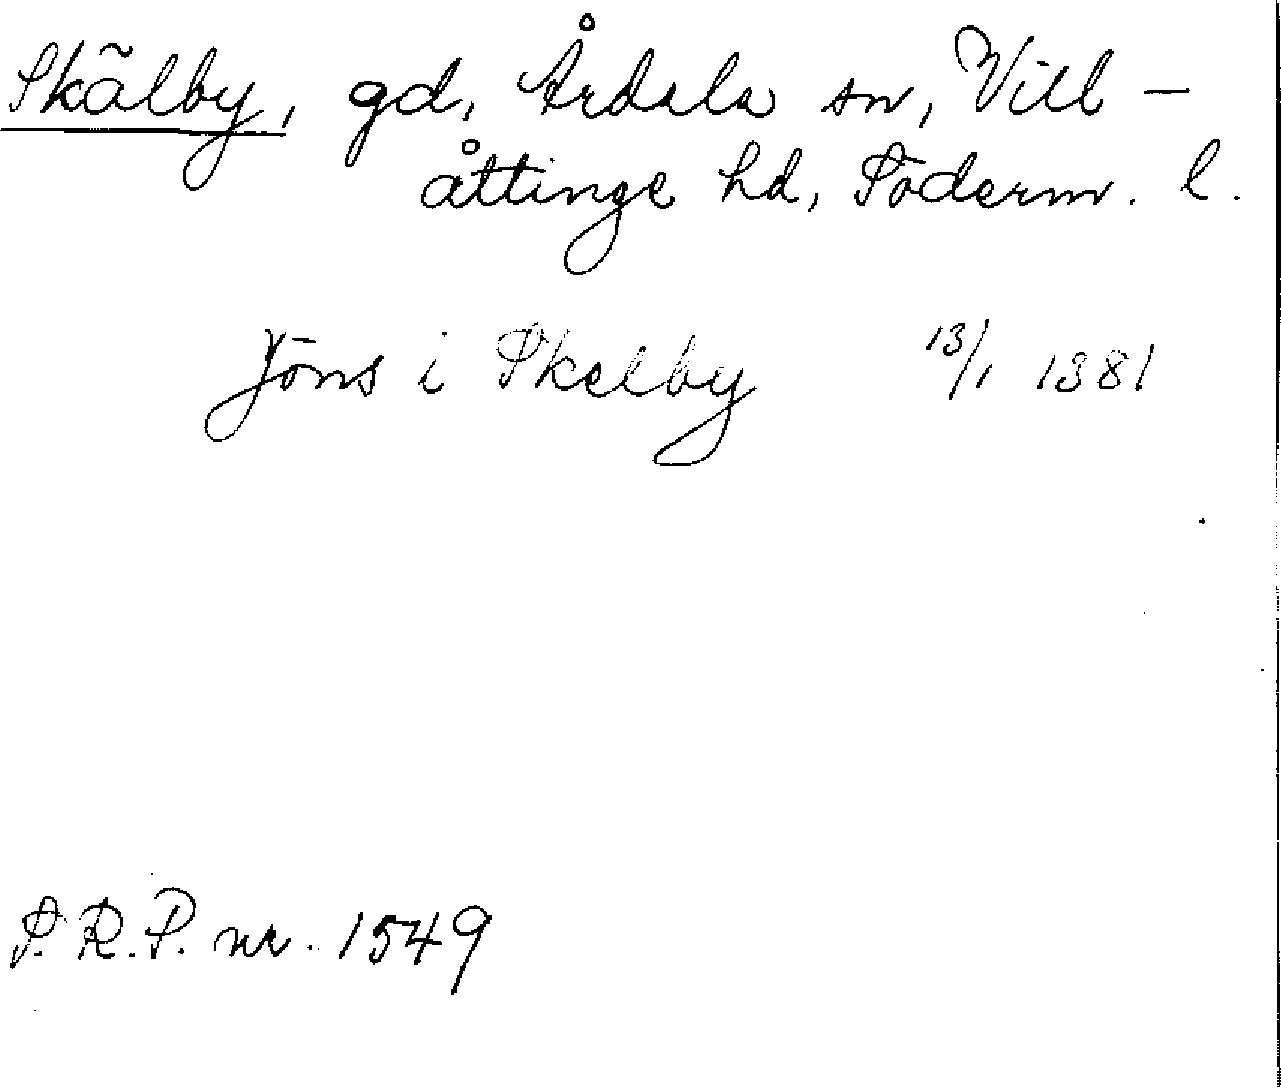 Skälby, gd, Årdala sn, Vill-
åttinge hd, Söderm. l.
Jöns i Skelby 13/1 1381
S.R.P. nr. 1549